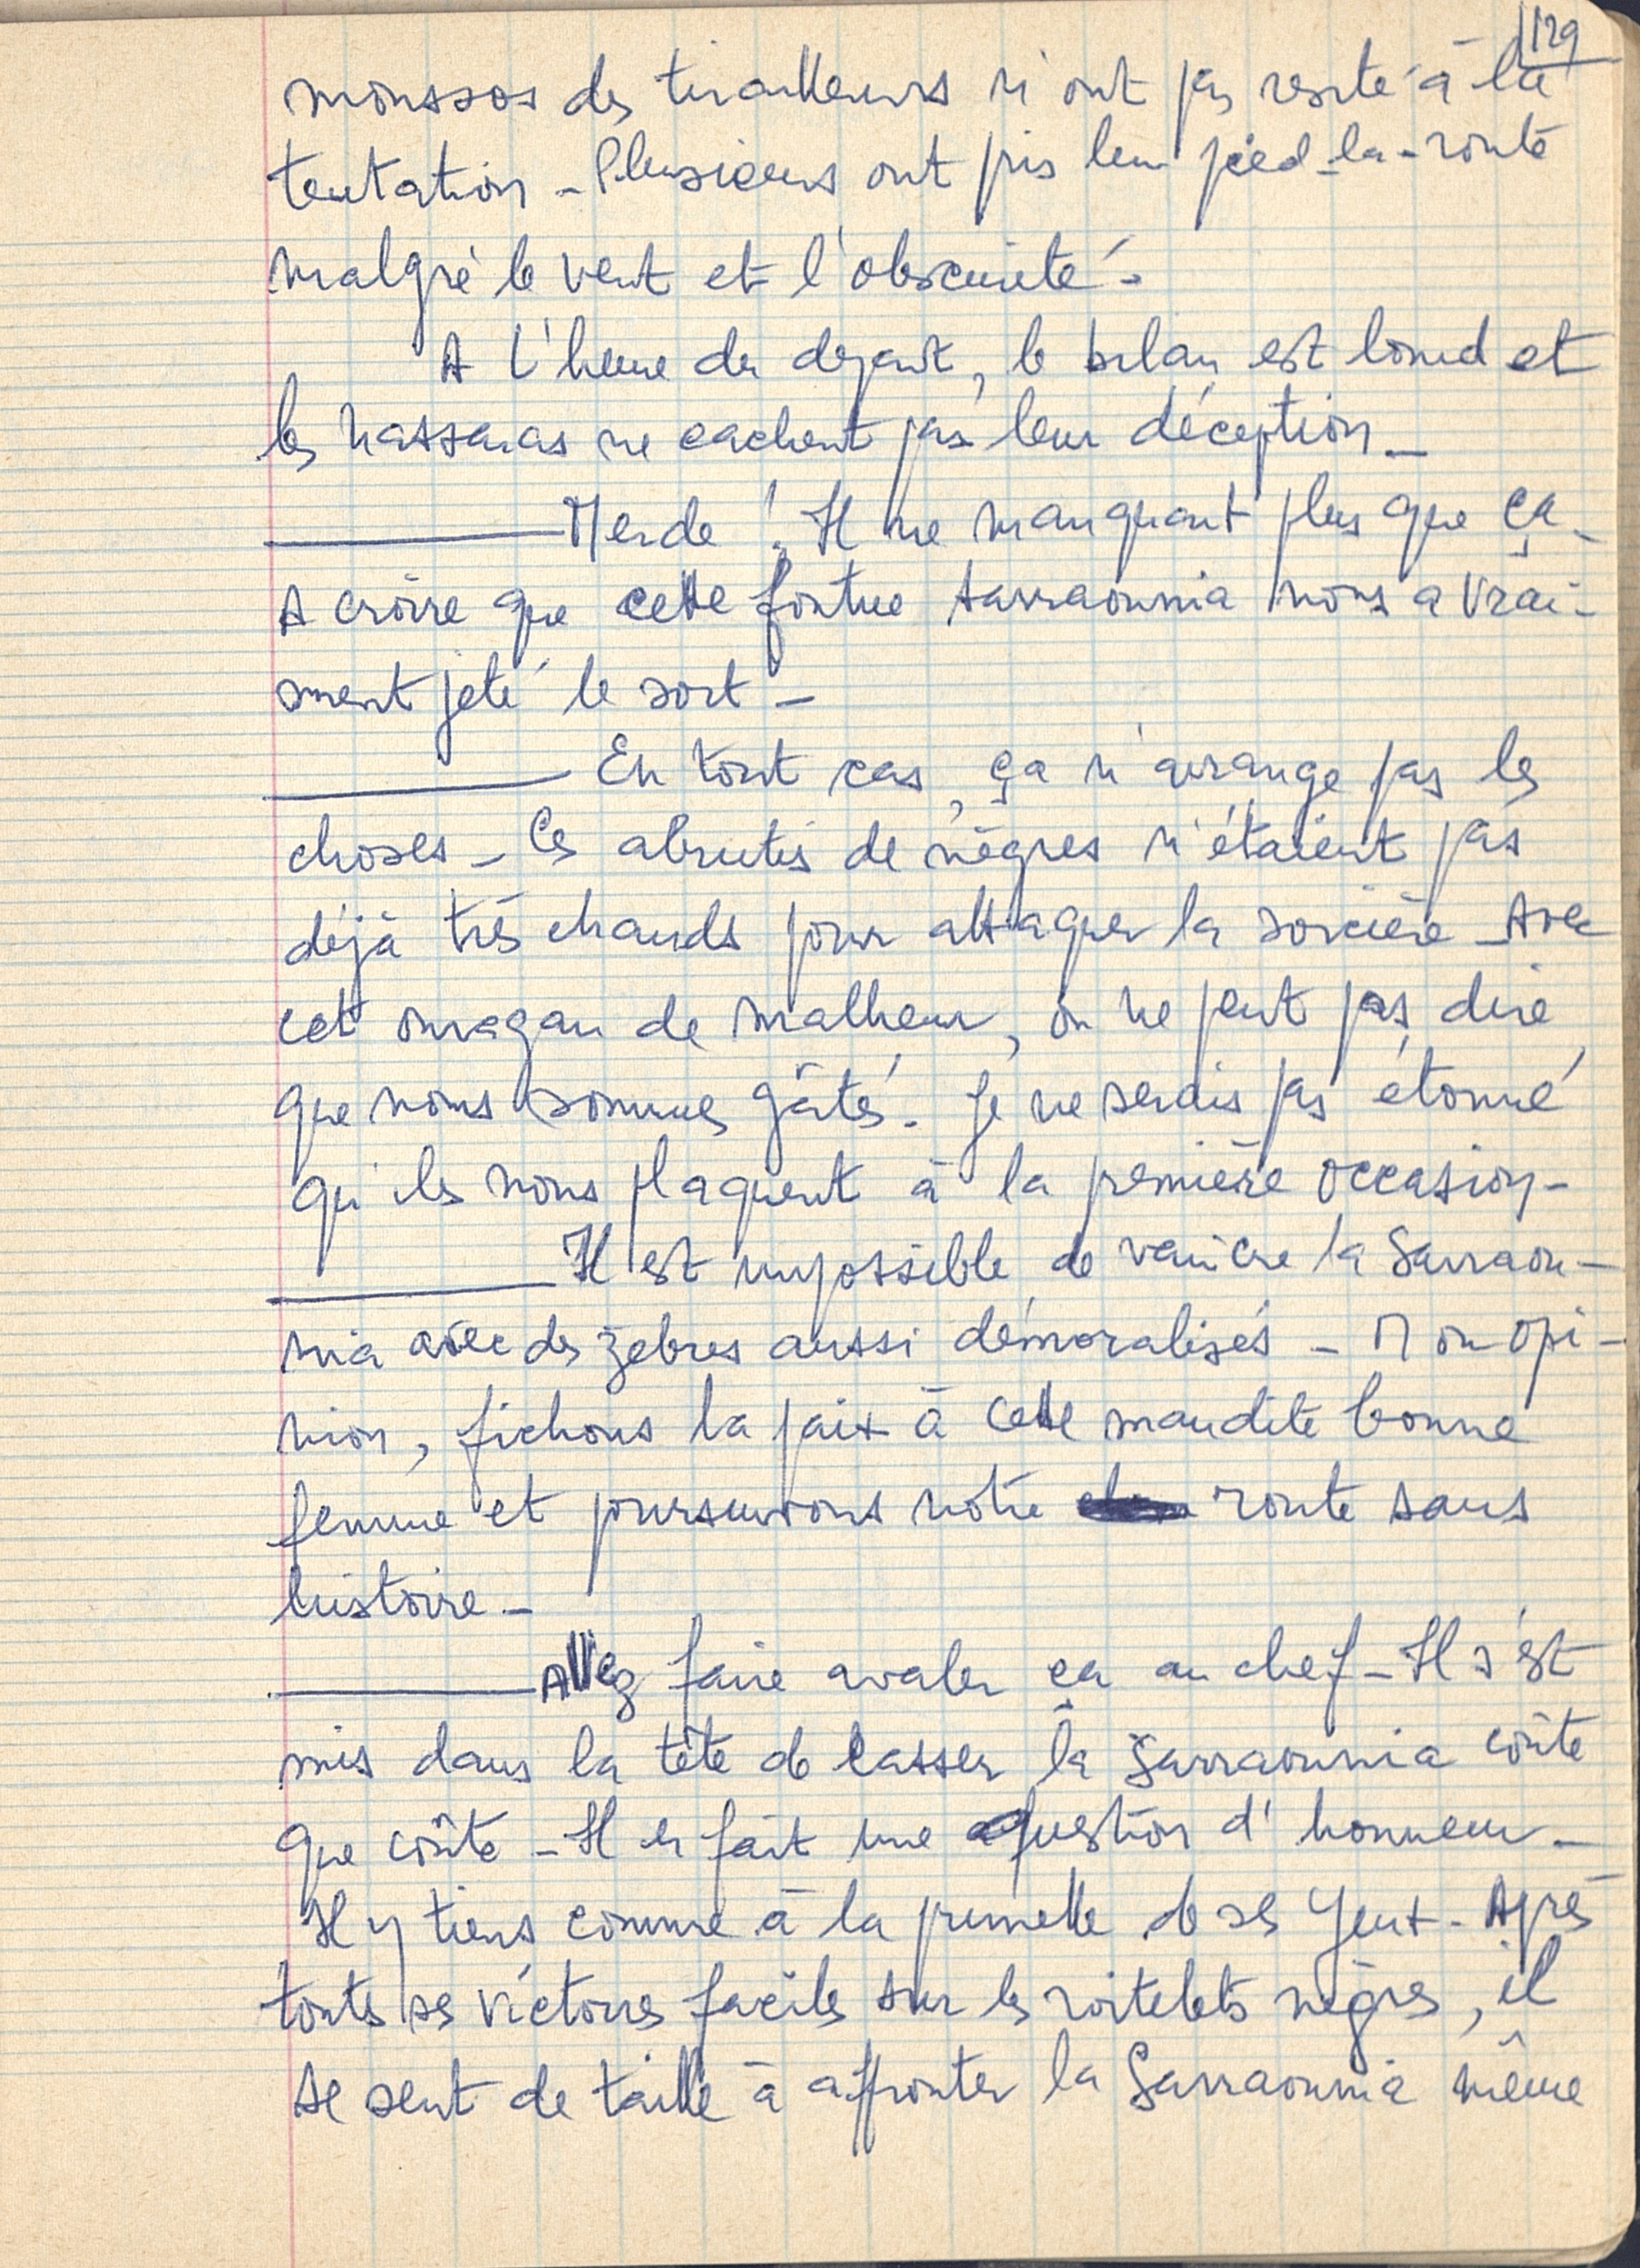 129
moussos des tirailleurs n'ont pas resité à la
tentation - Plusieurs ont pris leur pied-la-route
malgré le vent et l'obscurité -
A l'heure du départ, le bilan est lourd et
les nassaras ne cachent pas leur déception -
——— Merde ! Il ne manquait plus que ça -
A croire que cette foutue sarraounia nous a vrai-
ment jeté le sort -
——— En tout cas, ça n'arrange pas les
choses - Ces abrutis de nègres n'étaient pas
déjà très chauds pour attaquer la sorcière - Avec
cet ouragan de malheur, on ne peut pas dire
que nous sommes gâtés. Je ne serais pas étonné
qu'ils nous plaquent à la première occasion -
——— Il est impossible de vaincre la Sarraou-
nia avec des zèbres aussi démoralisés - Mon opi-
nion, fichons la paix à cette maudite bonne
femme et poursuivons notre route sans
histoire -
——— Allez faire avaler ça au chef - Il s'est
mis dans la tête de casser la Sarraounia coûte
que coûte - Il en fait une question d'honneur -
Il y tiens comme à la prunelle de ses yeux - Après
toutes ses victoires faciles sur les roitelets nègres, il
se sent de taille à affronter la Sarraounia même